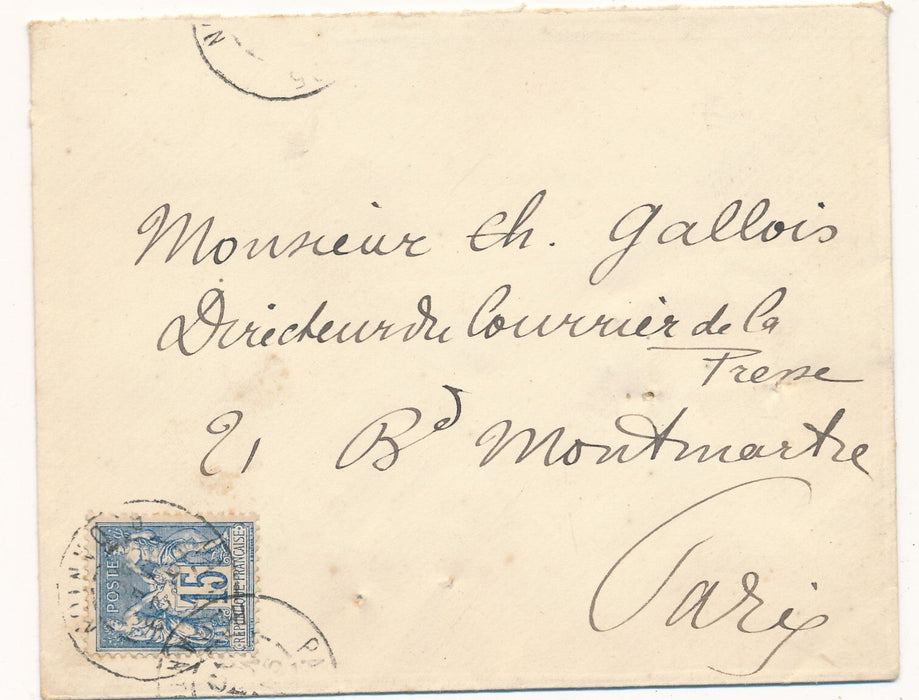 Monsieur Ch. Gallois
Directeur du Courrier de la
Presse
21 Bd Montmartre
Paris
POSTES
15
REPUBLIQUE FRANCAISE